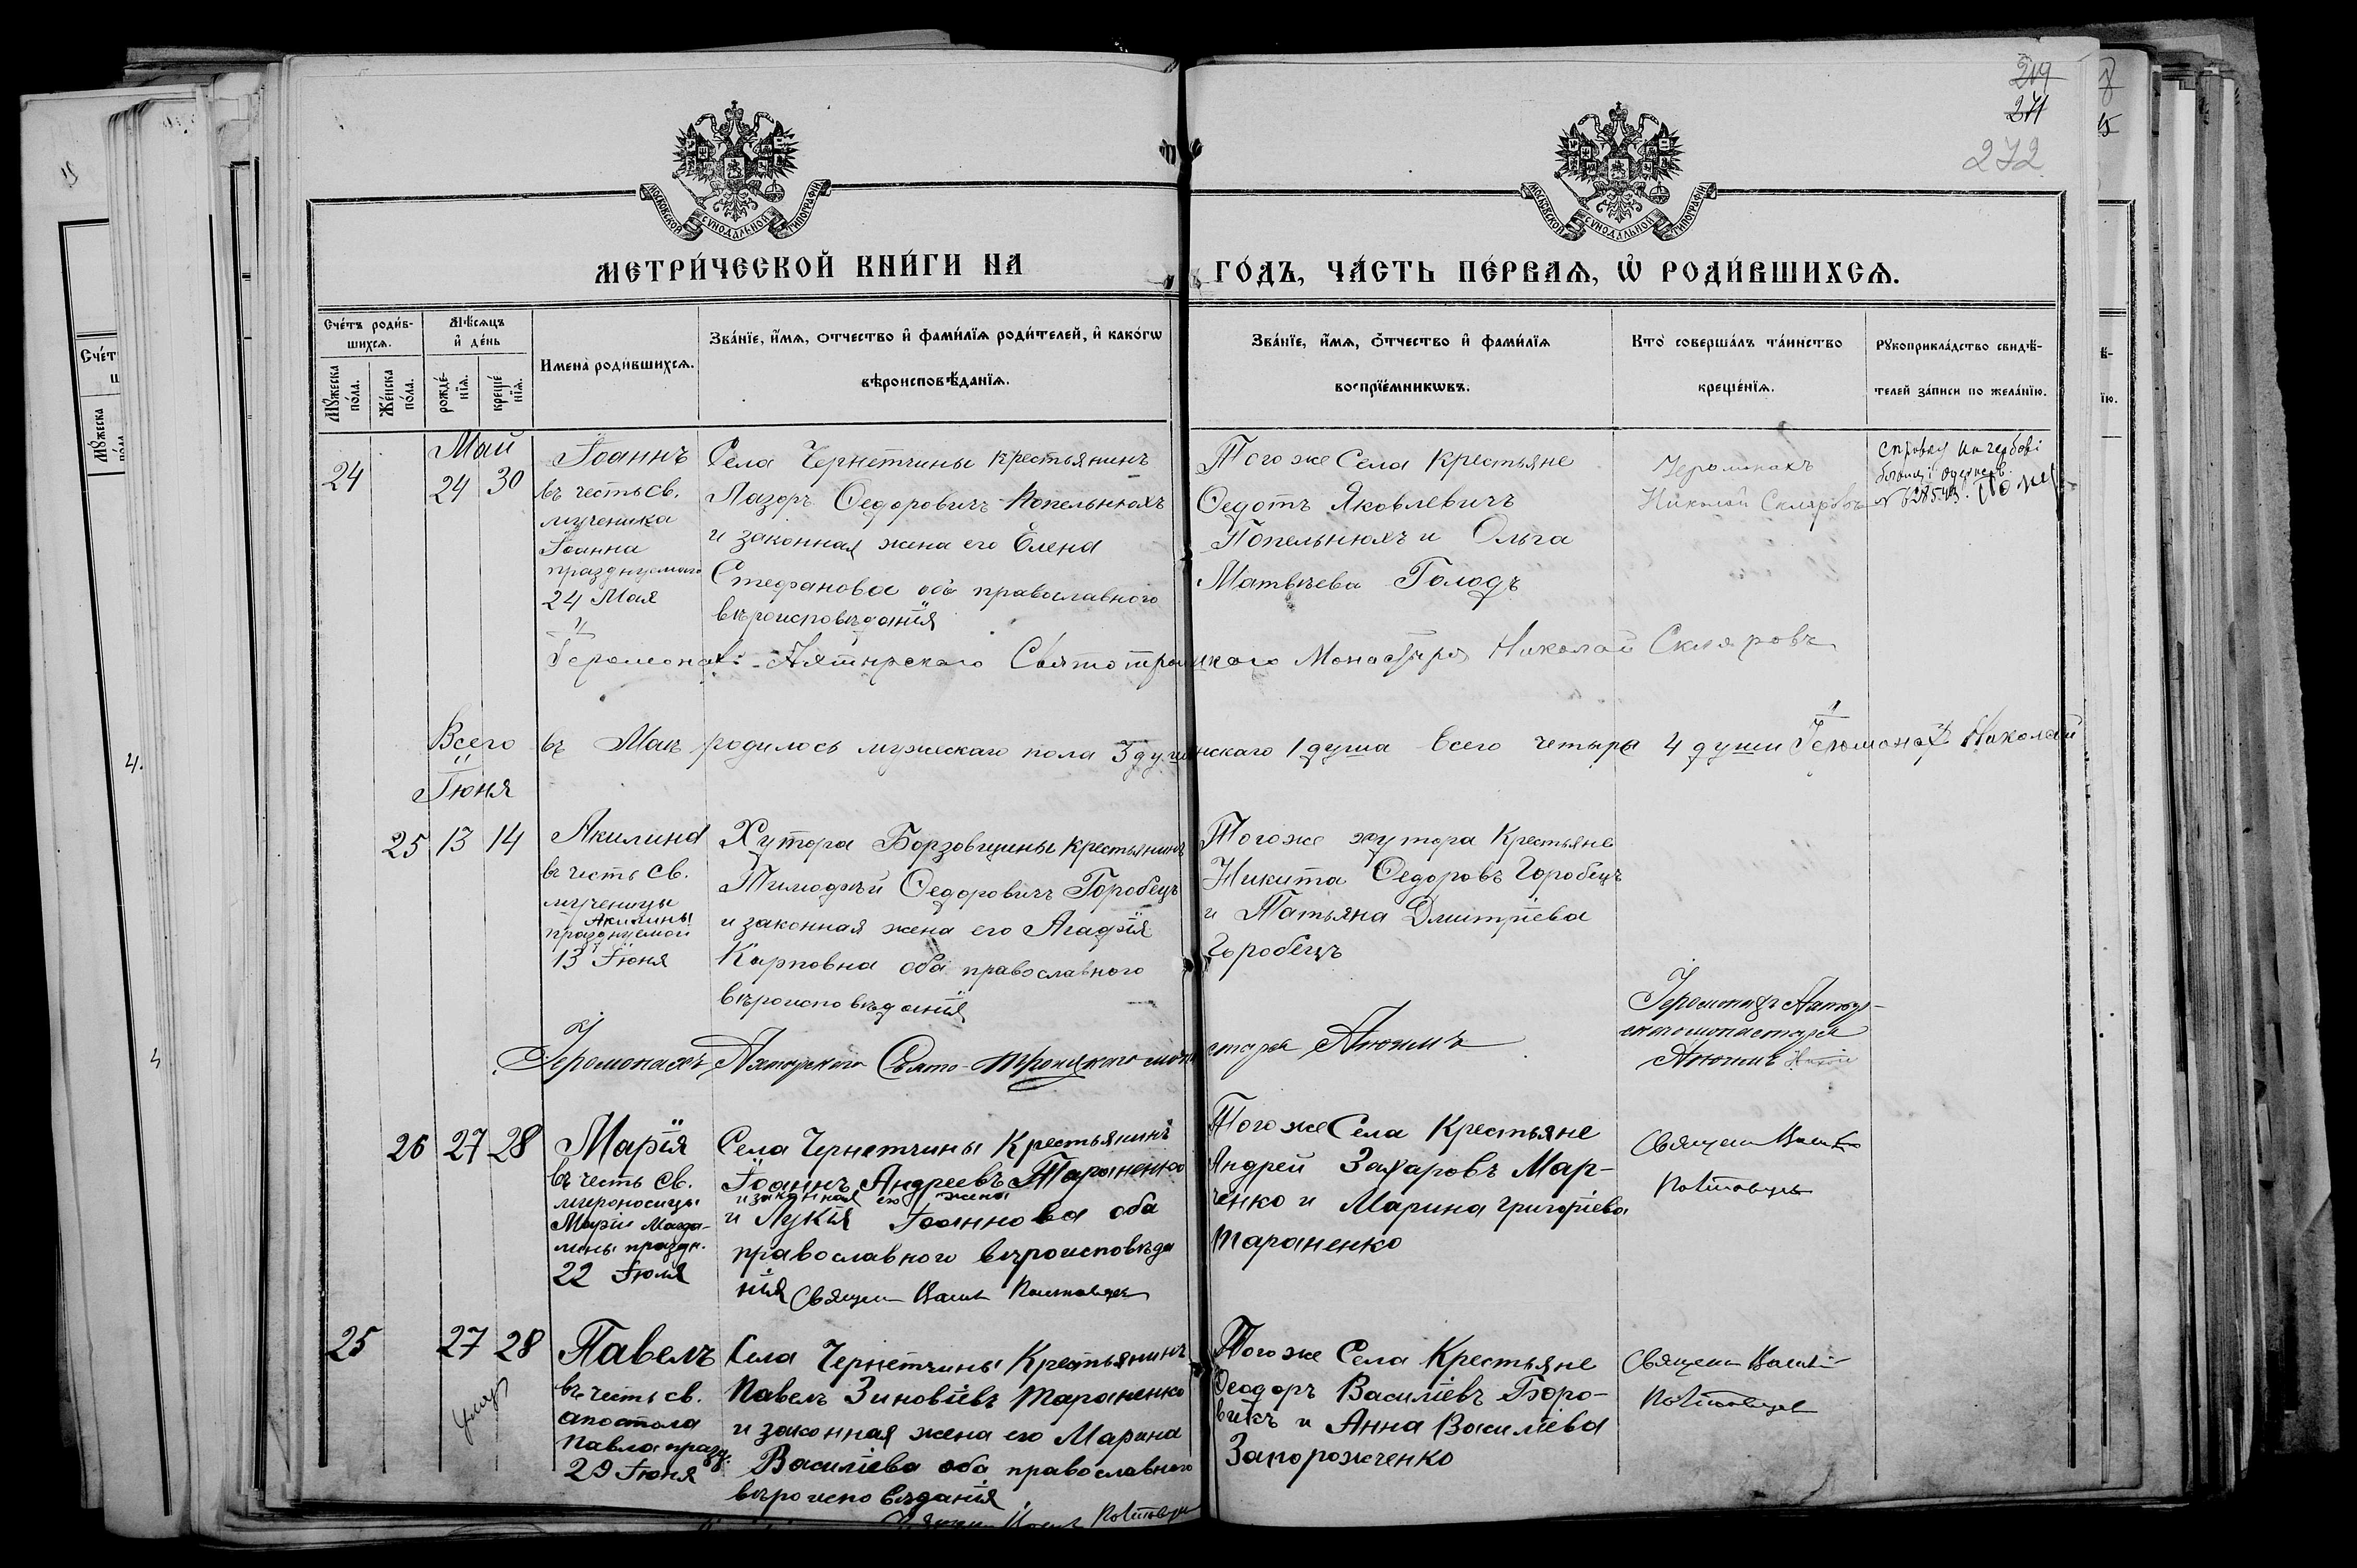 219
271
272
МОСКОВСКОЙ СѴНОДАЛЬНОЙ ТИПОГРАФІИ
МОСКОВСКОЙ СѴНОДАЛЬНОЙ ТИПОГРАФІИ
МЕТРИ́ЧЕСКОЙ КНИ́ГИ НА ГО́ДЪ, ЧА́СТЬ ПЕ́РВАѦ, Ѿ РОДИ́ВШИХСѦ.
Счéтъ роди́в-
шихсѧ.
Мꙋ́жеска
по́ла.
Же́нска
по́ла.
Мѣ́сѧцъ
и҆ де́нь
рожде́-
нїѧ.
креще́-
нїѧ.
Имена̀ роди́вшихсѧ.
Зва́нїе, и҆́мѧ, ѻ҆́тчество и҆ фами́лїѧ роди́телей, и҆ како́гѡ
вѣроисповѣ́данїѧ.
Зва́нїе, и҆́мѧ, ѻ҆́тчество и҆ фами́лїѧ
воспрїе́мникѡвъ.
Кто̀ соверша́лъ та́инство
креще́нїѧ.
Рꙋкоприкла́дство свидѣ́-
телей за́писи по жела́нїю.
Май
24 24 30
Іоаннъ
въ честь св.
мученика
Іоанна
празднуемаго
24 Мая
Села Чернетчины крестьянинъ
Лазорь Ѳедоровичъ Попельнюхъ
и законная жена его Елена
Стефанова оба православнаго
вѣроисповѣданія
Тогоже Села Крестьяне
Ѳедотъ Яковлевичъ
Попельнюхъ и Ольга
Матвѣева Голодъ
Іеромонахъ
Николай Скляровъ
Іеромонах: Ахтырскаго Святотроицкаго Монастыря Николай Скляровъ
Всего въ Маѣ родилось мужескаго пола 3 души женскаго 1 душа Всего четыре 4 души Іеромонах Николай
Іюня
25 13 14
Акилина
въ честь св.
мученицы
Акилины
празднуемой
13 Іюня
Хутора Борзовщины крестьянинъ
Тимофѣй Ѳедоровичъ Горобецъ
и законная жена его Агафія
Карповна оба православнаго
вѣроисповѣданія
Тогоже хутора Крестьяне
Никита Ѳедоровъ Горобецъ
и Татьяна Дмитріева
Горобецъ
Іеромонахъ Ахтыр-
скаго монастыря
Іеромонахъ Ахтырскаго Свято-троицкаго монастыря
26 27 28
Марія
въ честь св.
мироносицы
Маріи Магда-
лины праздн.
22 Іюля
Села Чернетчины Крестьянинъ
Іоаннъ Андреевъ Тараненко
и законная его жена
и Лукія Іоаннова оба
православнаго вѣроисповѣда
нія
Тогоже Села Крестьяне
Андрей Захаровъ Мар-
ченко и Марина Григоріева
Тараненко
25 27 28
Павелъ
въ честь св.
апостола
Павла празд.
29 Іюня
умер
Села Чернетчины Крестьянинъ
Павелъ Зиновіевъ Тараненко
и законная жена его Марина
Василіева оба православнаго
вѣроисповѣданія
Тогоже Села Крестьяне
Ѳеодоръ Василіевъ Боро-
викъ и Анна Василіева
Запорожченко